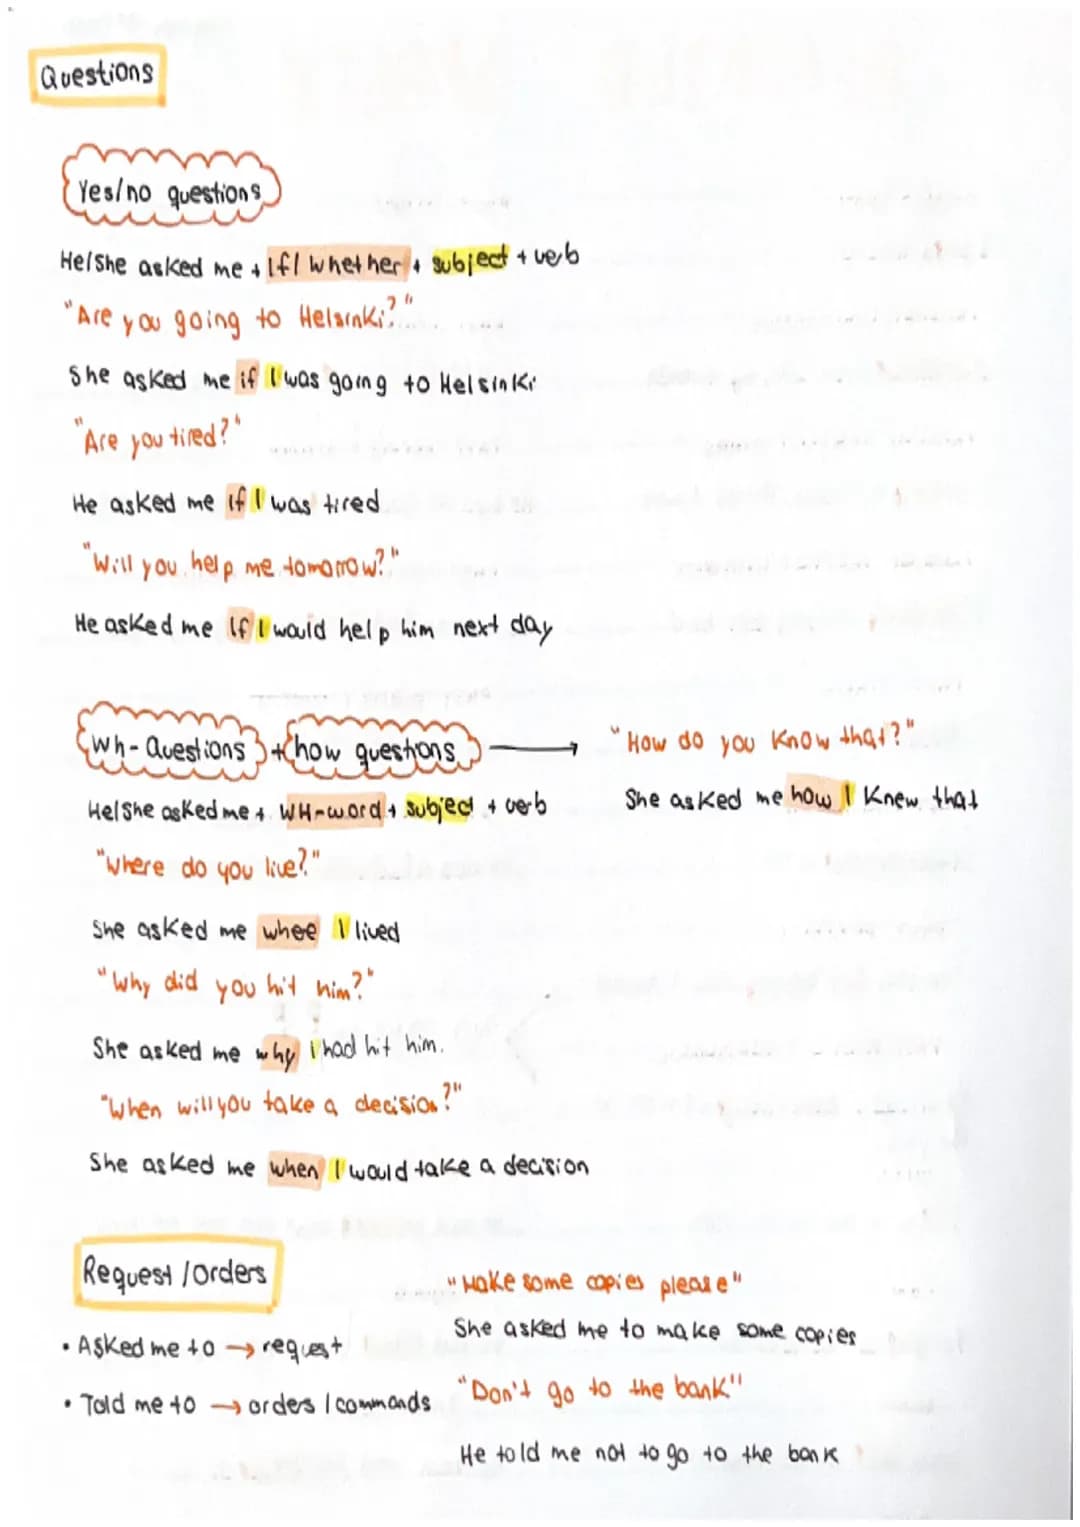 Questions
Yes/no questions
He/She asked me + If/ whether + subject + verb
"Are you going to Helsinki?"
She asked me if I was going to Helsinki
"Are you tired?"
He asked me if I was tired
"Will you help me tomorrow?"
He asked me If I would help him next day
Wh-Questions + how questions →
He/She asked me + WH-word + subject + verb
"Where do you live?"
She asked me whee I lived
"Why did you hit him?"
She asked me why I had hit him.
"When will you take a decision?"
She asked me when I would take a decision
"How do you know that?"
She asked me how I knew that
Request / Orders
• Asked me to → request
• Told me to → orders / commands
"Make some copies please"
She asked me to make some copies
"Don't go to the bank"
He told me not to go to the bank